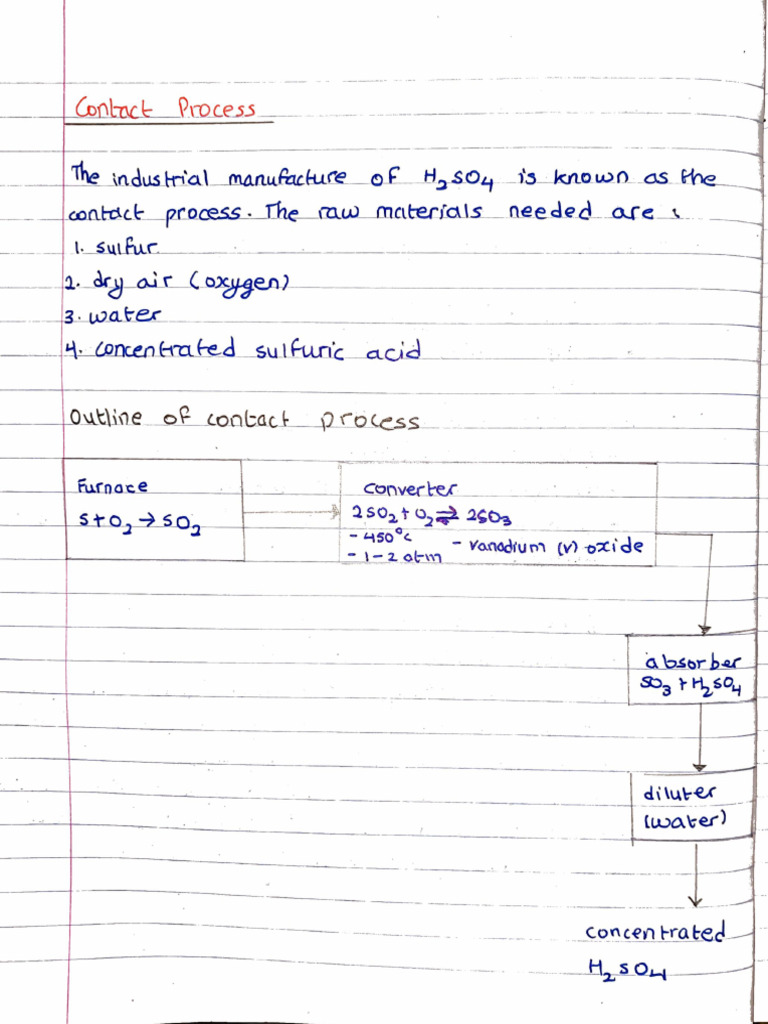 Contact Process
The industrial manufacture of H₂SO₄ is known as the
contact process. The raw materials needed are :
1. sulfur.
2. dry air (oxygen)
3. water
4. concentrated sulfuric acid
Outline of contact process
Furnace
S+O₂ → SO₂
converter
2SO₂ + O₂ ⇌ 2SO₃
- 450°c
- 1-2 atm
- vanadium (v) oxide
absorber
SO₃ + H₂SO₄
diluter
(water)
concentrated
H₂SO₄